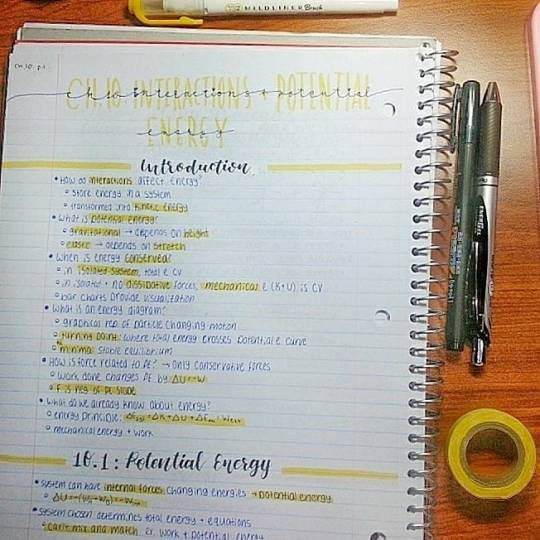 MILDLINER Brush
Ch.10. p.1
CH.10 INTERACTIONS + POTENTIAL
ch.10 interactions + potential
ENERGY
energy
Introduction
• How do interactions affect energy?
o store energy in a system
o transformed into kinetic energy
• What is potential energy?
o gravitational → depends on height
o elastic → depends on stretch
• When is energy conserved?
o in isolated system, total E cv
o in isolated + no dissipative forces, mechanical E (K+U) is CV
o bar charts provide visualization
• What is an energy diagram?
o graphical rep of particle changing motion
o turning point: where total energy crosses potential E curve
o minima: stable equilibrium
• How is force related to PE? → only conservative forces
o Work done changes PE by ΔU=-W
o F is neg of PE slope
• What do we already know about energy?
o energy principle:
o mechanical energy + work
10.1: Potential Energy
• system can have internal forces changing energies → potential energy
• system chosen determines total energy + equations
o can't mix and match work + potential energy